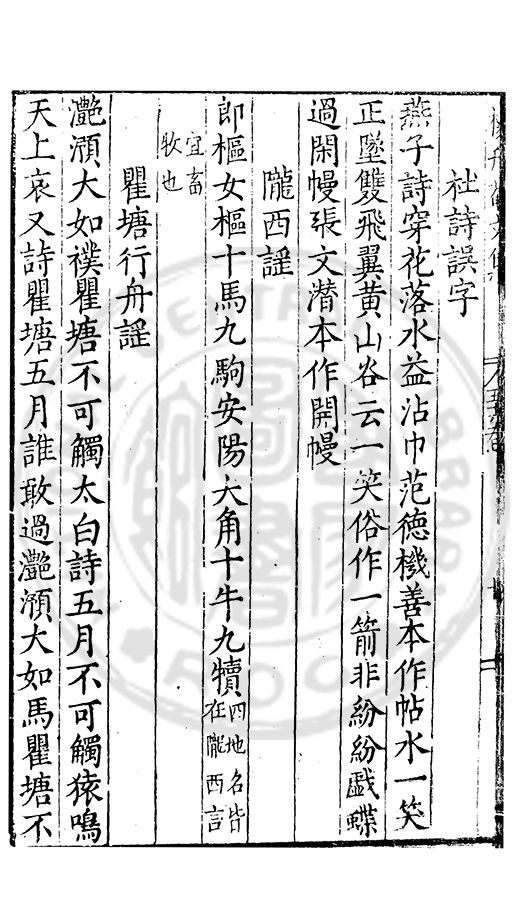 社詩誤字
燕子詩穿花落水益沾巾范德機善本作帖水一笑
正墜雙飛翼黄山谷云一笑俗作一箭非紛紛戯蝶
過閑幔張文潜本作開幔
隴西謡
郎樞女樞十馬九駒安陽大角十牛九犢四地名皆在隴西言
宜畜牧也
瞿塘行舟謡
灧澦大如襆瞿塘不可觸太白詩五月不可觸猿鳴
天上哀又詩瞿塘五月誰敢過灧澦大如馬瞿塘不